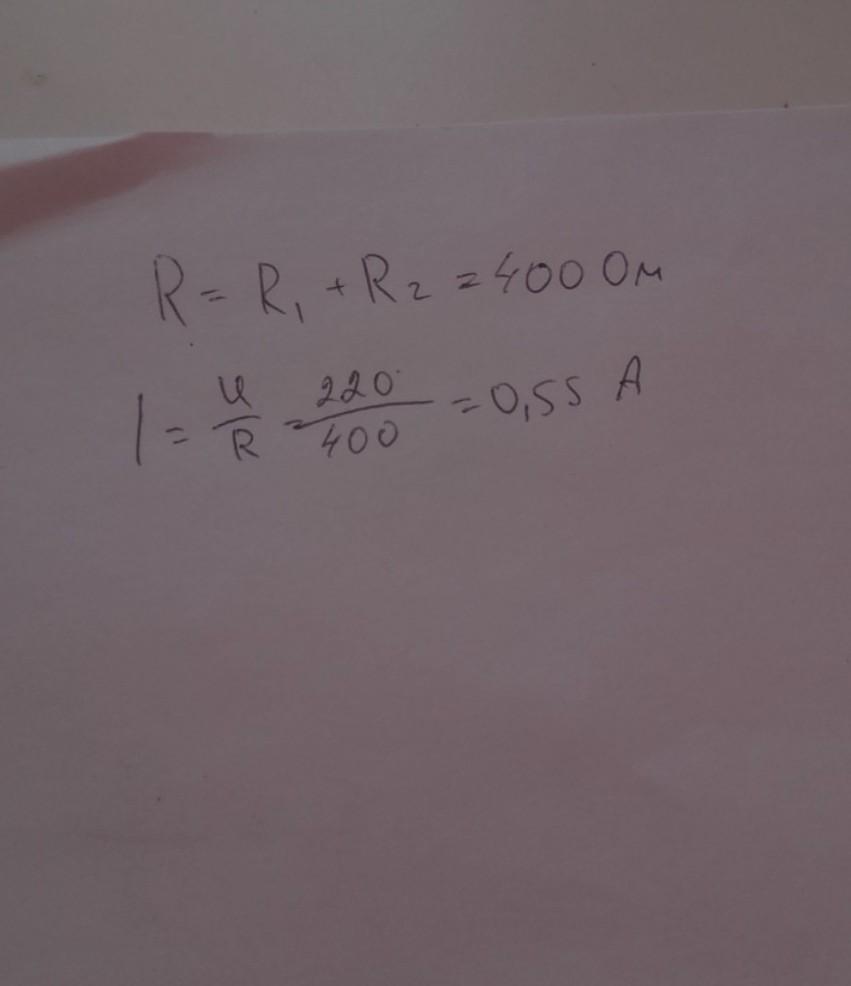 R = R₁ + R₂ = 400 Ом
I = U/R = 220/400 = 0,55 А